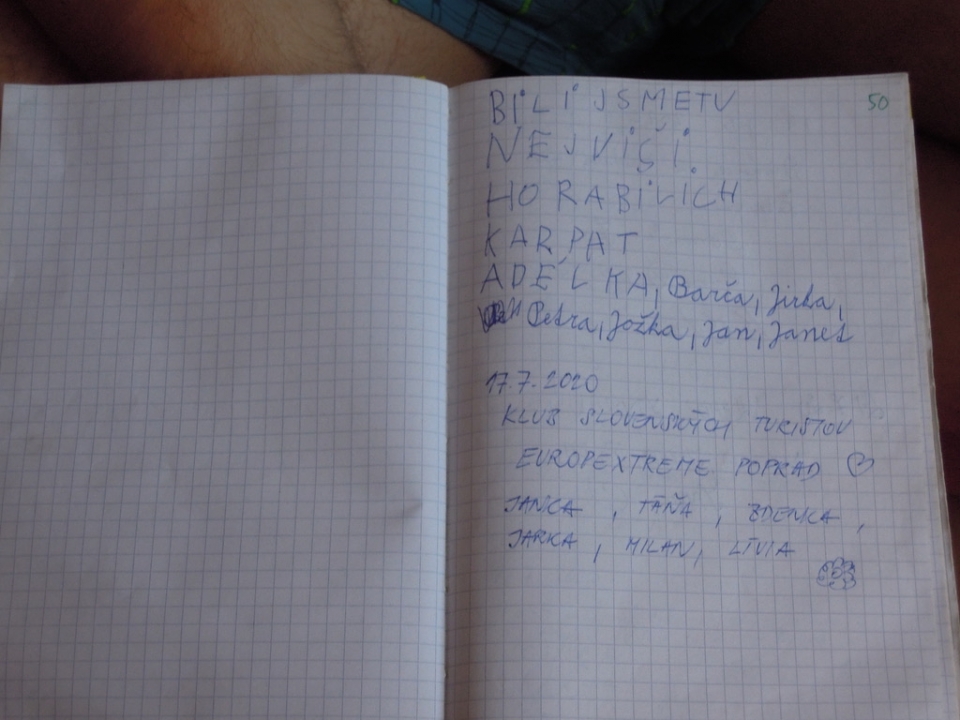 BiLi JSMETU
50
NEJViŠi
HORABiLiCH
KARPAT
ADÉLKA, Barča, Jirka,
Petra, Jožka, Jan, Janet
17.7.2020
KLUB SLOVENSKÝCH TURISTOV
EUROPEXTREME POPRAD
JANKA, TÁŇA, ZDENKA,
JARKA, MILAN, LÍVIA